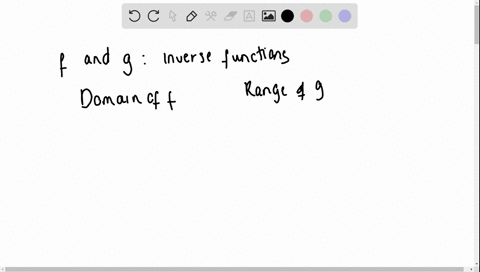 f and g : Inverse functions
Domain of f Range of g